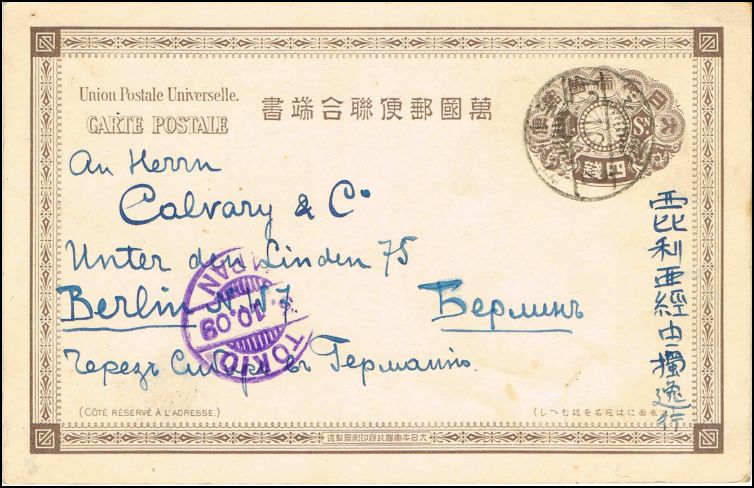 Union Postale Universelle.
CARTE POSTALE
萬國郵便聯合端書
大日本
S:
四錢
An Herrn
Calvary & Co
Unter den Linden 75
Berlin NW 7
Берлинъ
Черезъ Сибирь въ Германію.
毘利亞經由獨逸行
TOKIO
JAPAN
10.09
(CÔTÉ RÉSERVÉ À L'ADRESSE.)
大日本帝國政府印刷局製造